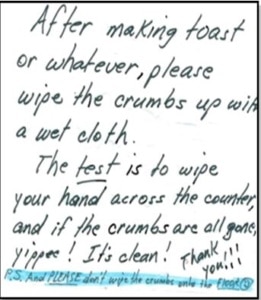 After making toast
or whatever, please
wipe the crumbs up with
a wet cloth.
The test is to wipe
your hand across the counter,
and if the crumbs are all gone,
yippee! It's clean! Thank
you!!!
P.S. And PLEASE don't wipe the crumbs onto the floor